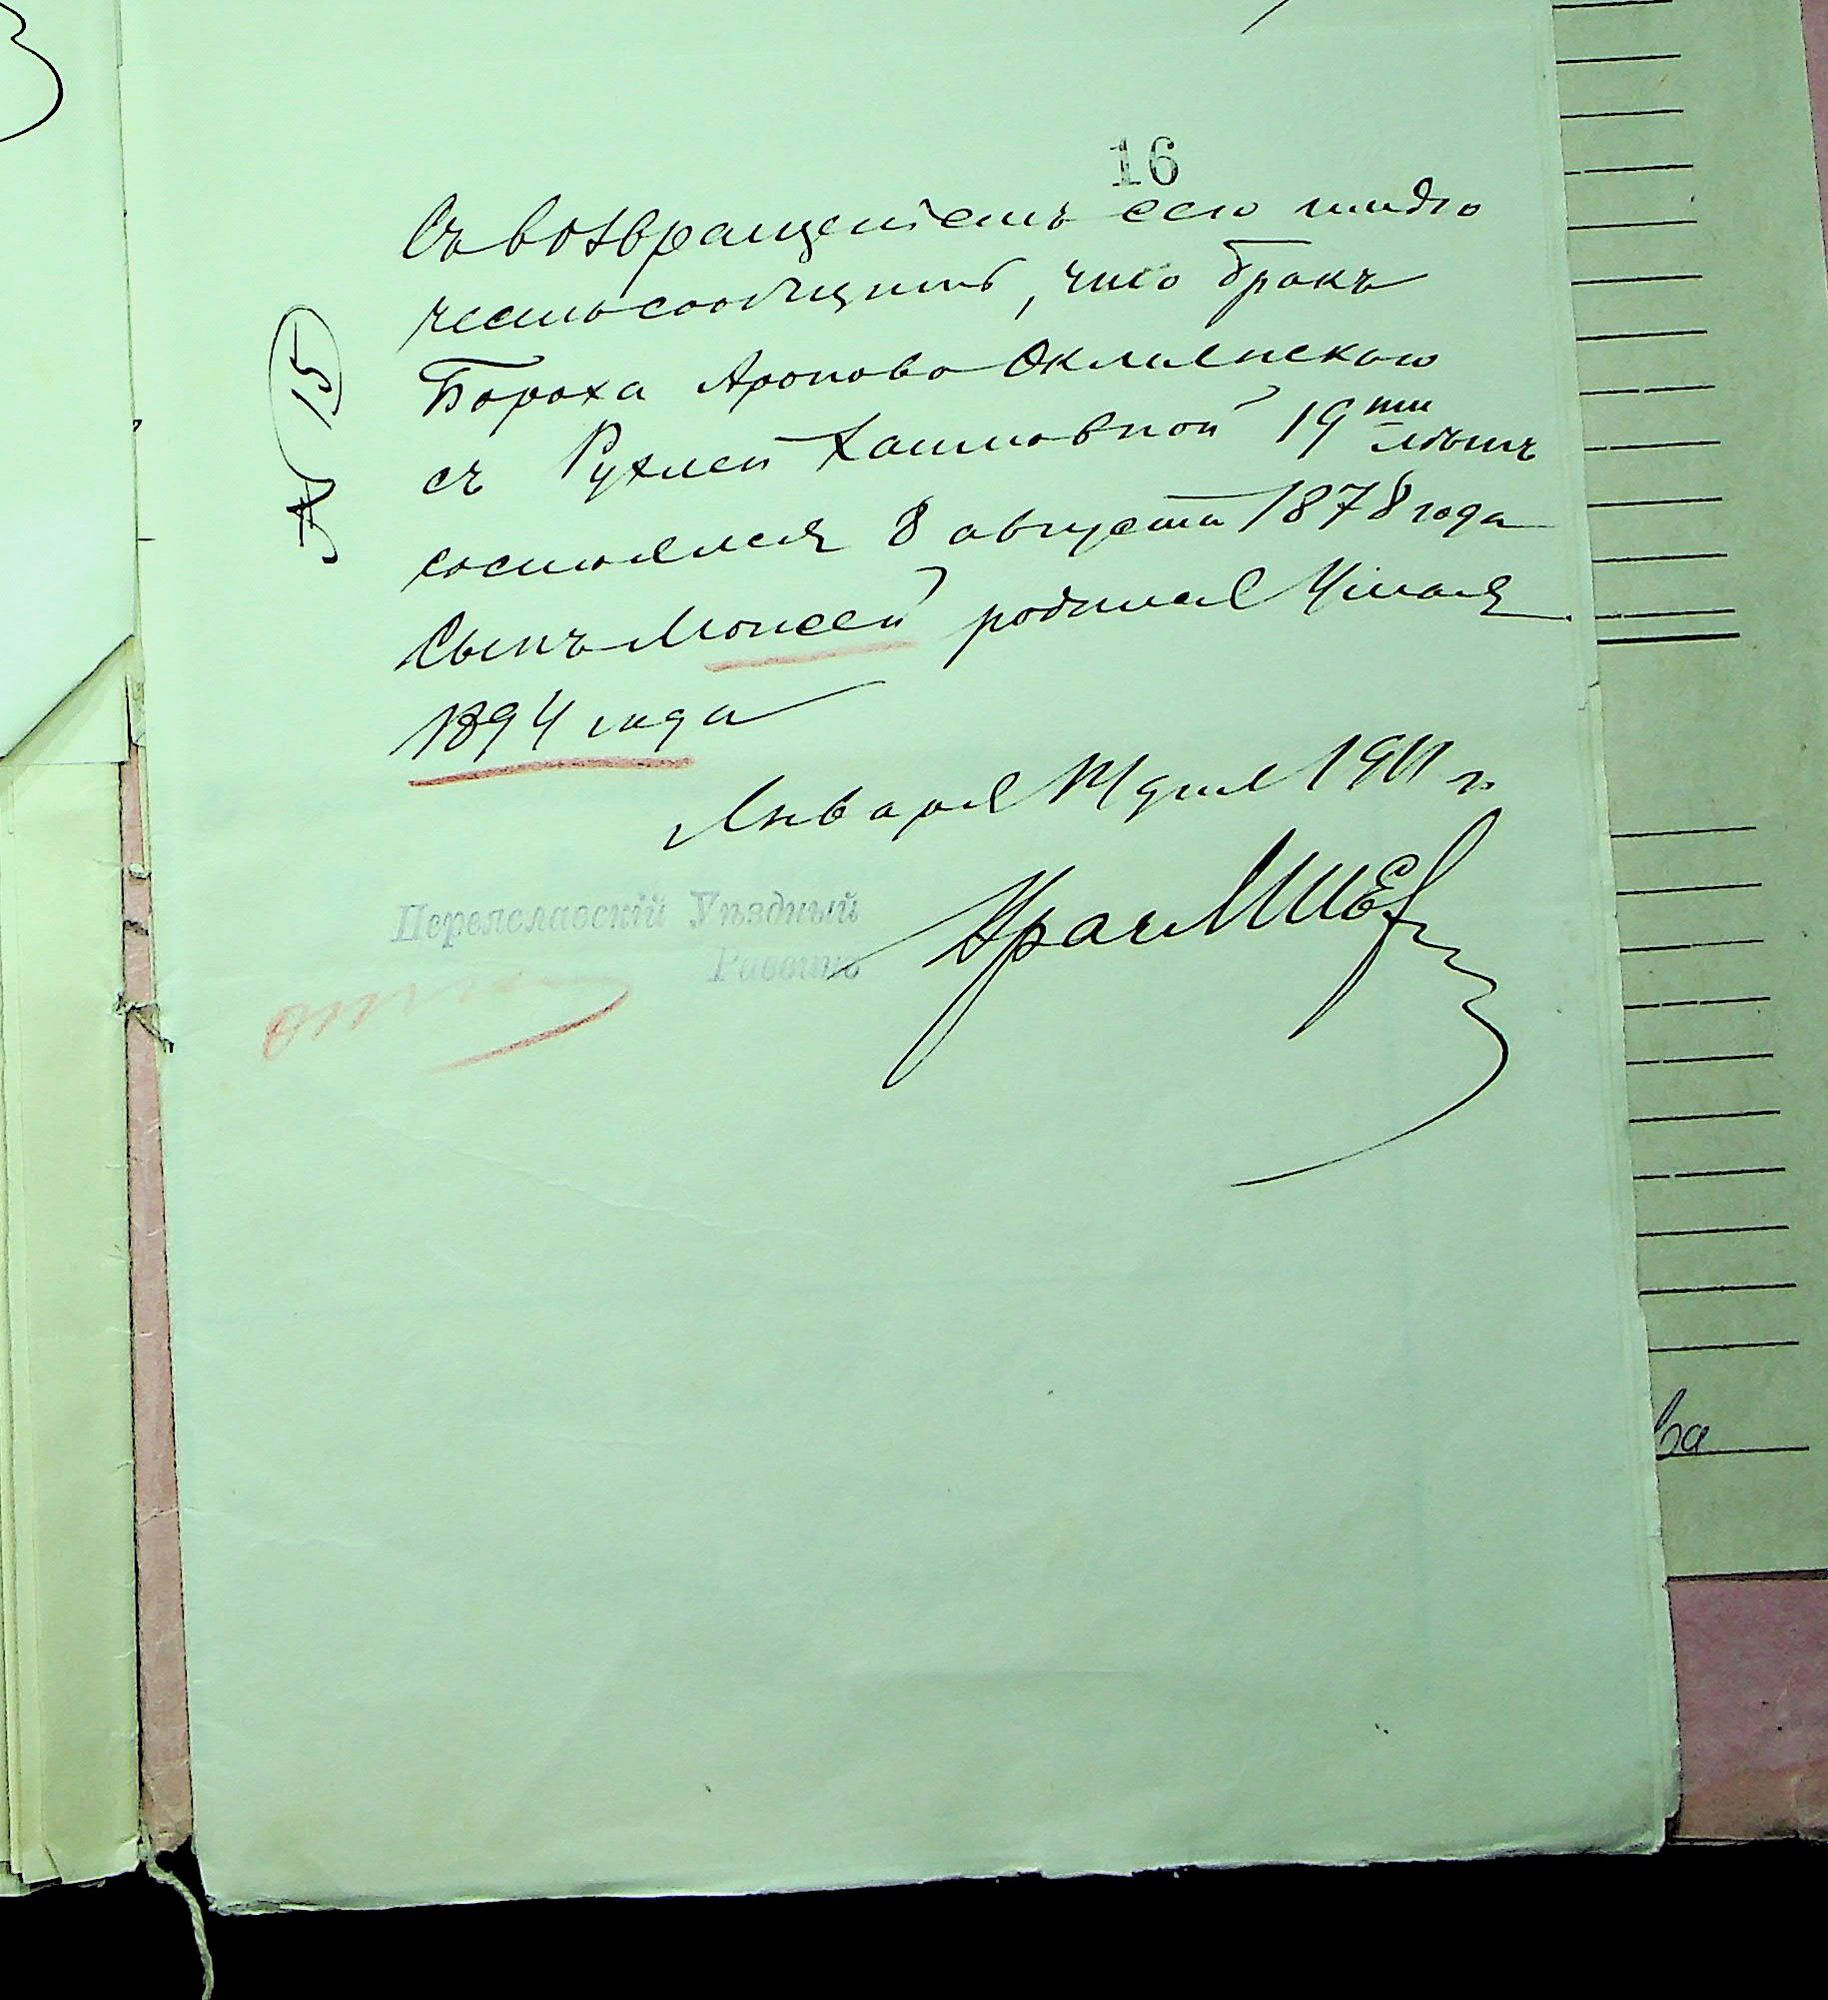 16
Съ возвращеніемъ сего имѣю
честь сообщить, что бракъ
Бороха Аронова Оклянскаго
съ Рухлей Хаимовной 19ти лѣтъ
состоялся 8 августа 1878 года
Сынъ Моисей родился 4 мая
1894 года
Января дня 1911 г.
Переяславскій Уѣздный
Раввинъ
Врач
№ 15
ва